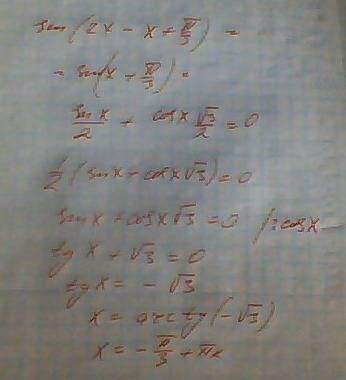 sin(2x - x + π/3) =
= sin(x + π/3) =
sinx/2 + cosx√3/2 = 0
1/2(sinx + cosx√3) = 0
sinx + cosx√3 = 0 /:cosx
tg x + √3 = 0
tg x = - √3
x = arctg(-√3)
x = - π/3 + πk